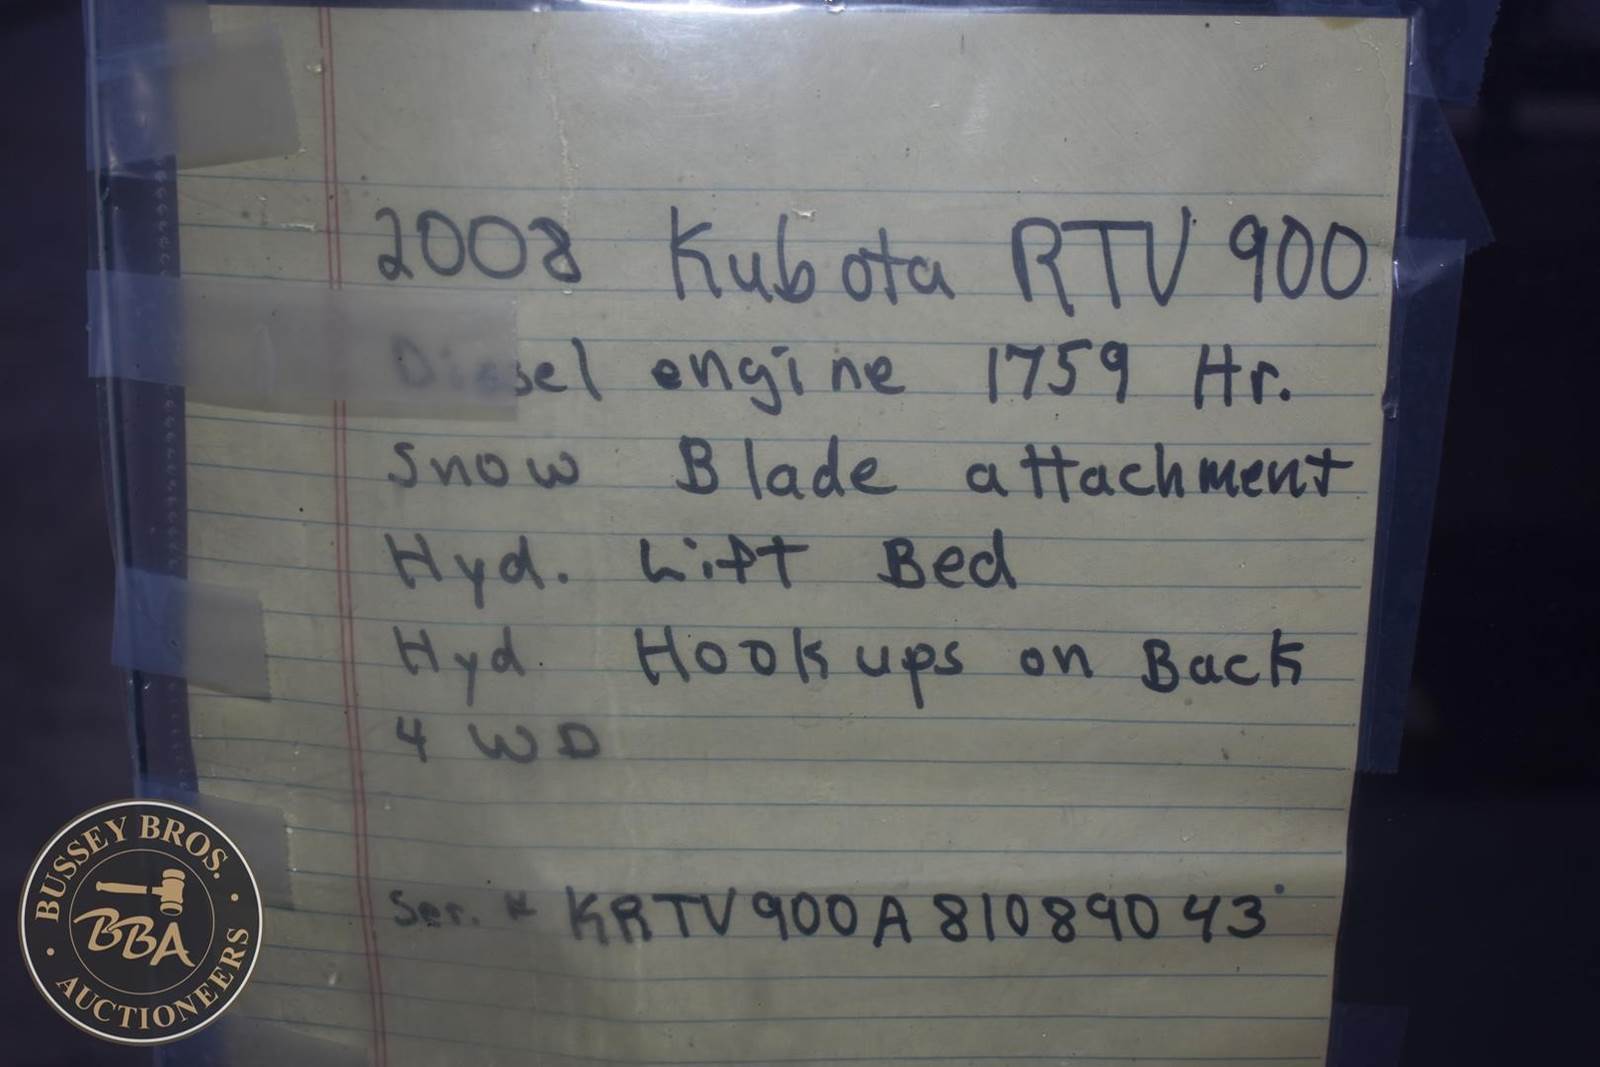 2008 Kubota RTV 900
Diesel engine 1759 Hr.
Snow Blade attachment
Hyd. Lift Bed
Hyd. Hookups on Back
4 WD
Ser. # KRTV900A81089043
BUSSEY BROS.
BBA
AUCTIONEERS